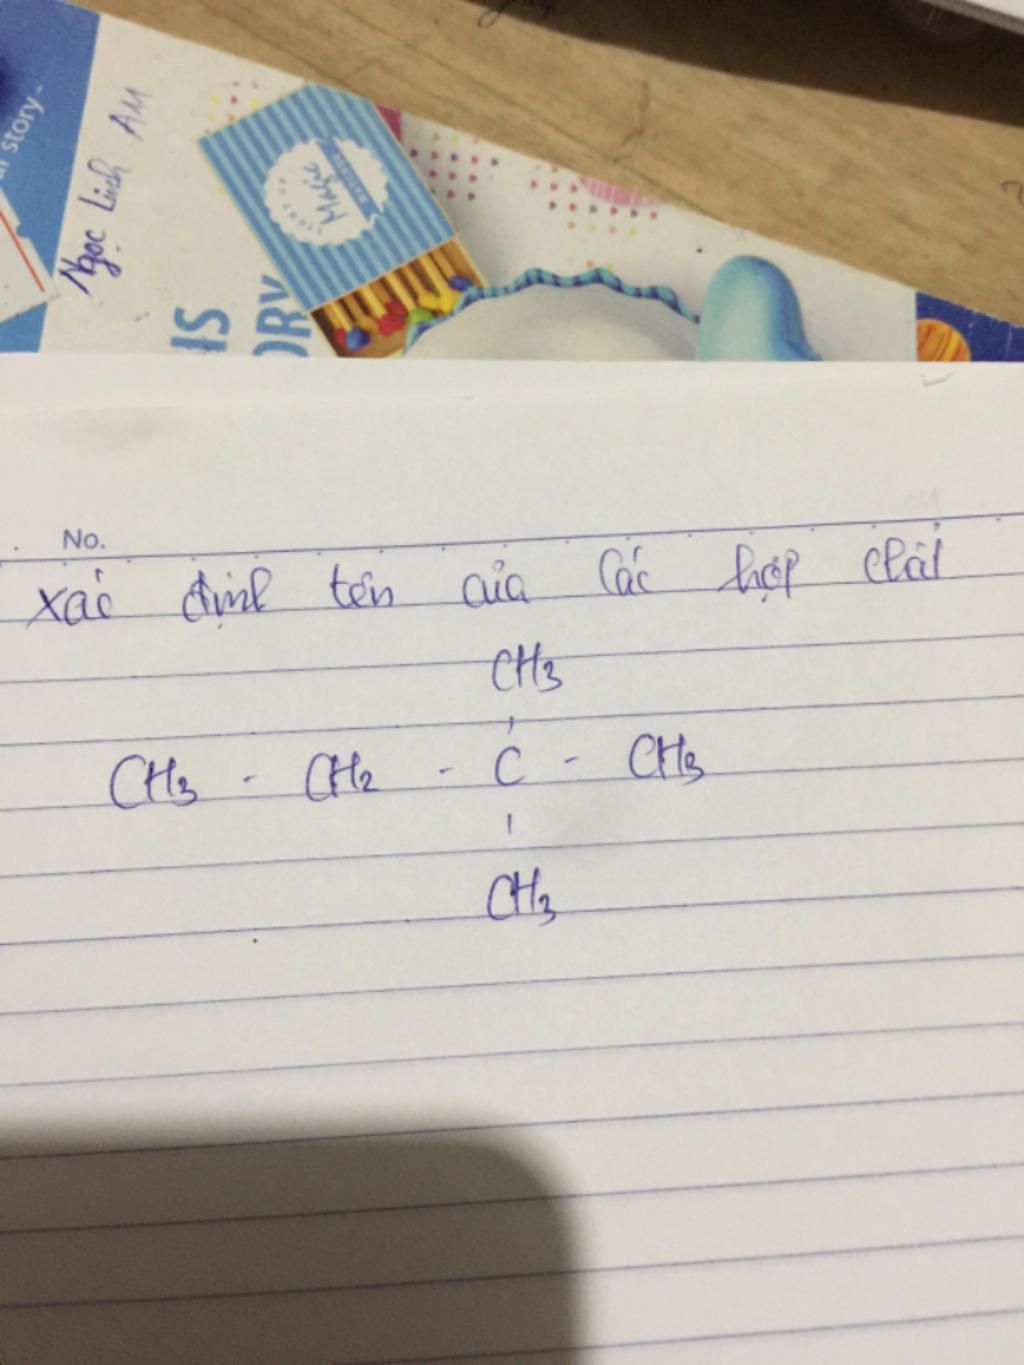 story-
Ngọc Linh AM
Magic
No.
xác định tên của các hợp chất
CH3
CH3 - CH2 - C - CH3
CH3